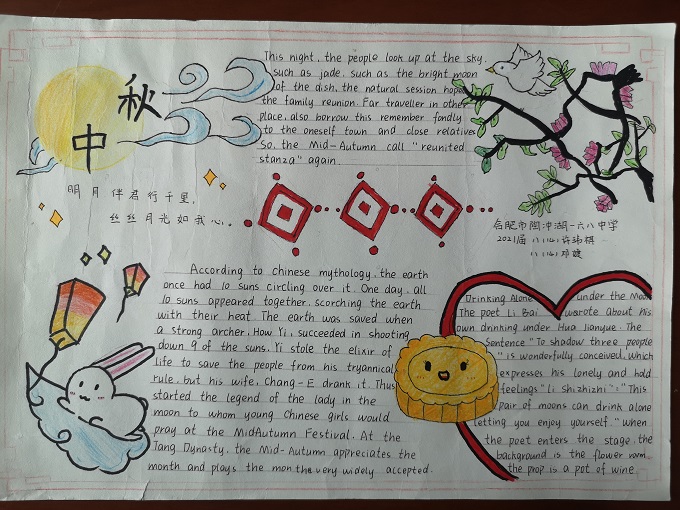 中秋
This night, the people look up at the sky,
such as jade, such as the bright moon
of the dish, the natural session hope
the family reunion. Far traveller in other
place, also borrow this remember fondly
to the oneself town and close relatives
So, the Mid-Autumn call "reunited
stanza" again.
明月伴君行千里,
丝丝月光如我心。
合肥市陶冲湖一六八中学
2021届 八(14) 许玮棋
八(14) 邓媛
According to chinese mythology, the earth
once had 10 suns circling over it. One day, all
10 suns appeared together, scorching the earth
with their heat. The earth was saved when
a strong archer, How Yi, succeeded in shooting
down 9 of the suns. Yi stole the elixir of
life to save the people from his tryannical
rule, but his wife, Chang-E drank it. Thus
started the legend of the lady in the
moon to whom young Chinese girls would
pray at the MidAutumn Festival. At the
Tang Dynasty, the Mid-Autumn appreciates the
month and plays the mon the very widely accepted.
Drinking Alone under the Moon
The poet Li Bai wrote about his
own drinking under Hua Jianyue. The
Sentence "To shadow three people
" is wonderfully conceived, which
expresses his lonely and hold
feelings "Li Shizhizhi": "This
pair of moons can drink alone
letting you enjoy yourself. "When
the poet enters the stage, the
background is the flower room,
the prop is a pot of wine